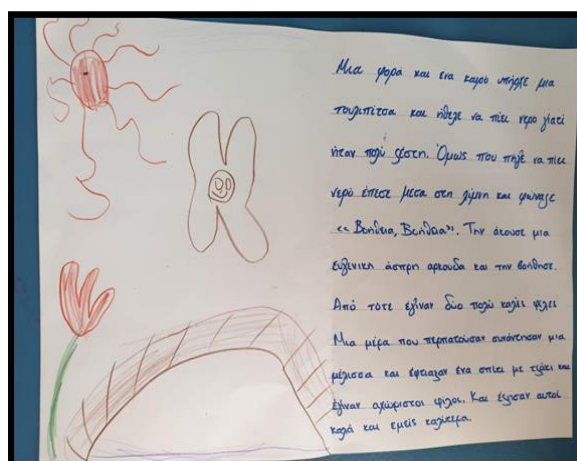 Μια φορά και ένα καιρό υπήρξε μια
τουλιπίτσα και ήθελε να πιει νερό γιατί
ήταν πολύ ζέστη. Όμως που πήγε να πιει
νερό έπεσε μέσα στη λίμνη και φώναξε
<< Βοήθεια, Βοήθεια>>. Την άκουσε μια
ευγενική άσπρη αρκούδα και την βοήθησε.
Από τότε έγιναν δύο πολύ καλές φίλες
Μια μέρα που περπατούσαν συνάντησαν μια
μέλισσα και έφτιαξαν ένα σπίτι με τζάκι και
έγιναν αχώριστοι φίλοι. Και έζησαν αυτοί
καλά και εμείς καλύτερα.